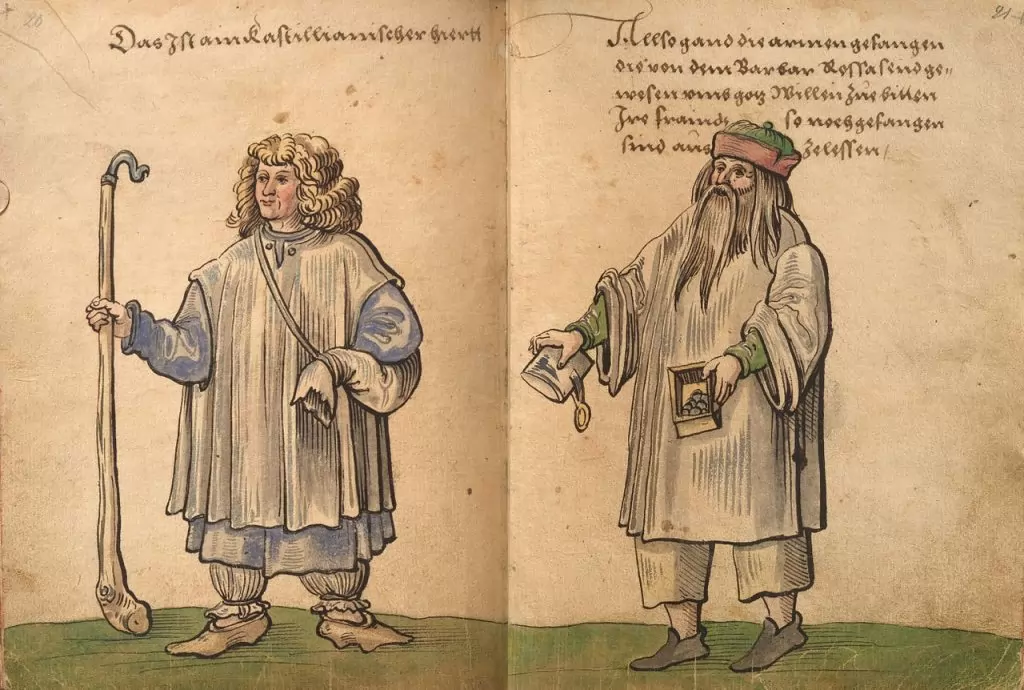 20
Das Ist ain Kastillianischer hiertt
21
Allso gand die armen gefangen
die von dem Barbar Rossa send ge=
wesen umb gotz Willen zue bitten
Ire fraind so noch gefangen
sind aus zelessen